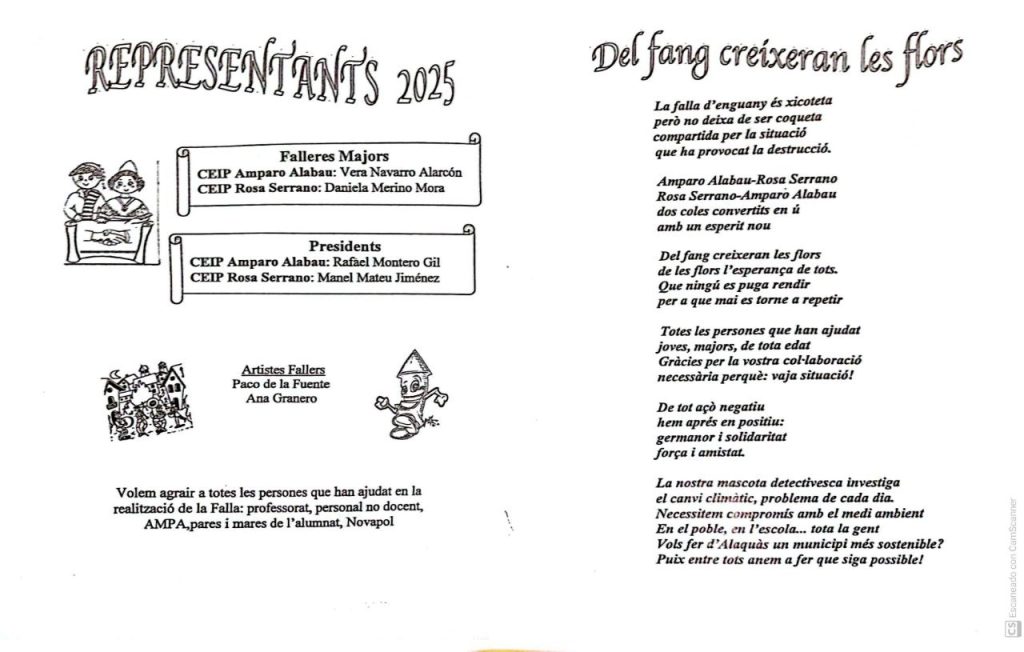 REPRESENTANTS 2025
Falleres Majors
CEIP Amparo Alabau: Vera Navarro Alarcón
CEIP Rosa Serrano: Daniela Merino Mora
Presidents
CEIP Amparo Alabau: Rafael Montero Gil
CEIP Rosa Serrano: Manel Mateu Jiménez
Artistes Fallers
Paco de la Fuente
Ana Granero
Volem agrair a totes les persones que han ajudat en la
realització de la Falla: professorat, personal no docent,
AMPA,pares i mares de l'alumnat, Novapol
Del fang creixeran les flors
La falla d'enguany és xicoteta
però no deixa de ser coqueta
compartida per la situació
que ha provocat la destrucció.
Amparo Alabau-Rosa Serrano
Rosa Serrano-Amparo Alabau
dos coles convertits en ú
amb un esperit nou
Del fang creixeran les flors
de les flors l'esperança de tots.
Que ningú es puga rendir
per a que mai es torne a repetir
Totes les persones que han ajudat
joves, majors, de tota edat
Gràcies per la vostra col·laboració
necessària perquè: vaja situació!
De tot açò negatiu
hem aprés en positiu:
germanor i solidaritat
força i amistat.
La nostra mascota detectivesca investiga
el canvi climàtic, problema de cada dia.
Necessitem compromís amb el medi ambient
En el poble, en l'escola... tota la gent
Vols fer d'Alaquàs un municipi més sostenible?
Puix entre tots anem a fer que siga possible!
CS Escaneado con CamScanner